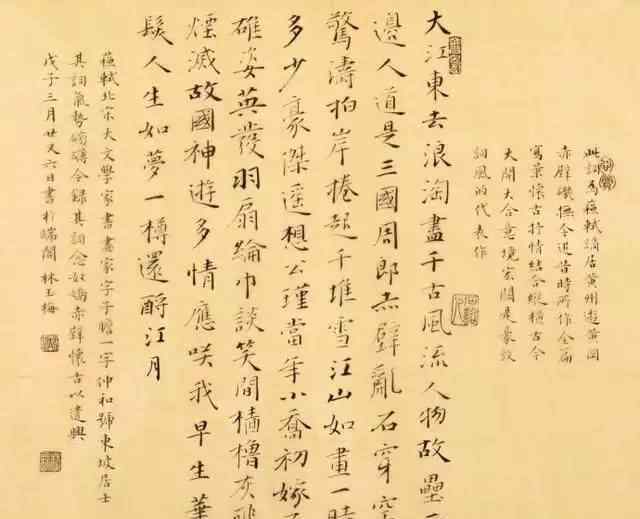 此詞為蘇軾謫居黃州遊黃岡
赤壁磯撫今追昔時所作全篇
寫景懷古抒情結合縱橫古今
大開大合意境宏闊是豪放
詞風的代表作
大江東去浪淘盡千古風流人物故壘
邊人道是三國周郎赤壁亂石穿空
驚濤拍岸捲起千堆雪江山如畫一時
多少豪傑遙想公瑾當年小喬初嫁
雄姿英發羽扇綸巾談笑間檣櫓灰飛
煙滅故國神遊多情應咲我早生華
髮人生如夢一樽還酹江月
蘇軾北宋大文學家書畫家字子瞻一字仲和號東坡居士
其詞氣勢磅礴今錄其詞念奴嬌赤壁懷古以遣興
戊子三月廿又六日書於端閣 林玉梅